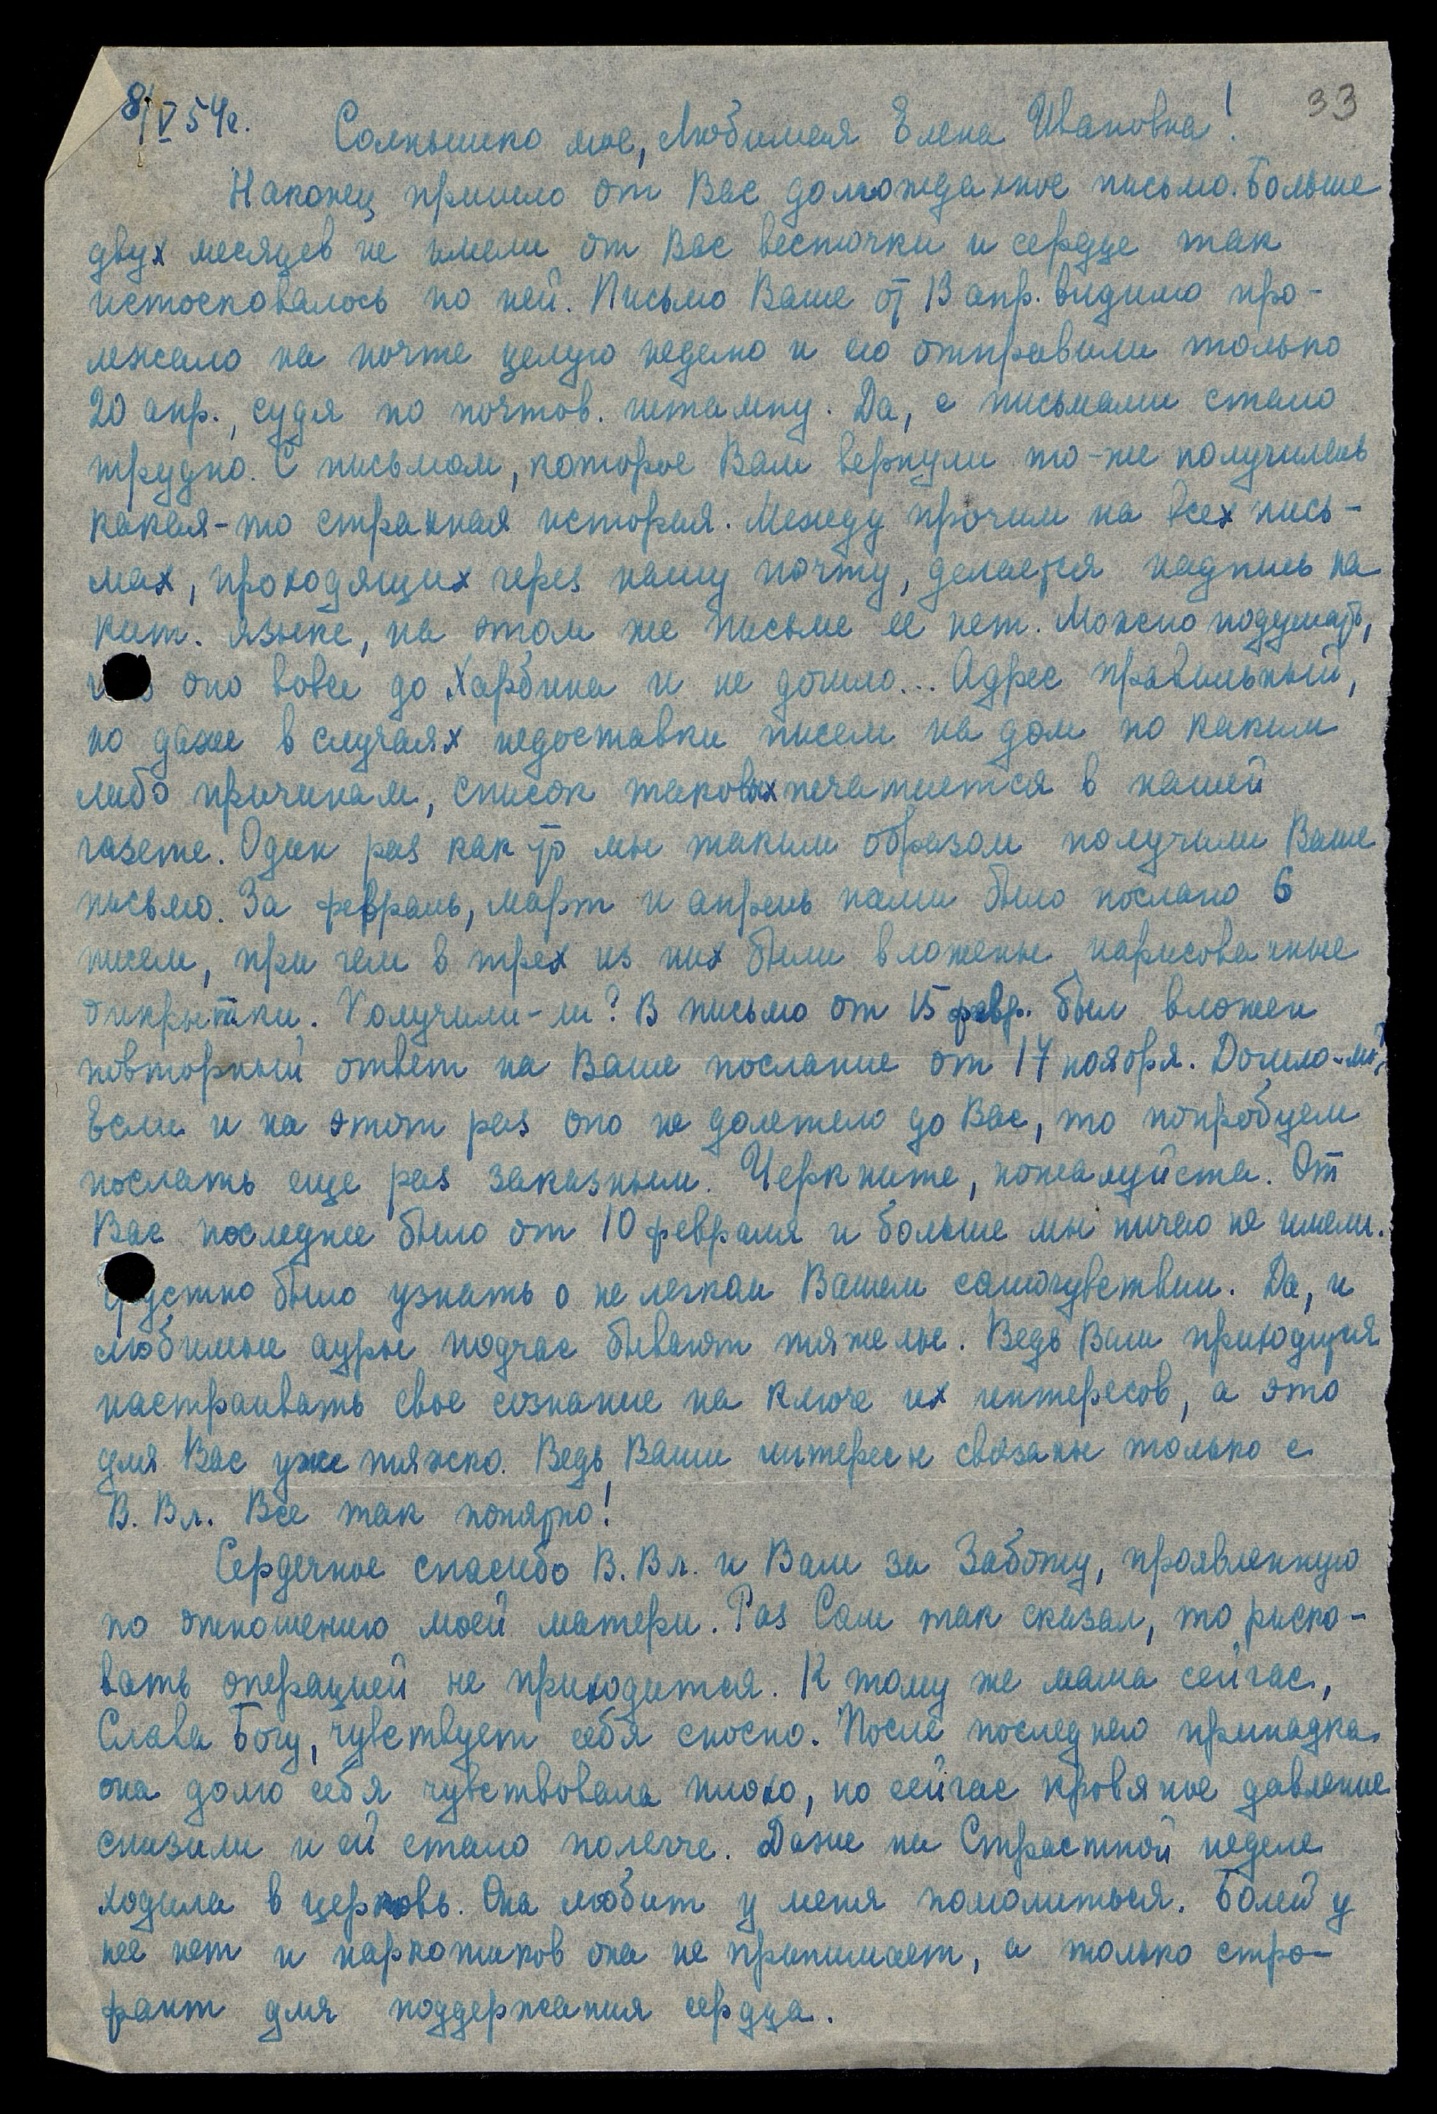 8/V 54г.
33
Солнышко мое, Любимая Елена Ивановна!
Наконец пришло от Вас долгожданное письмо. Больше
двух месяцев не имели от Вас весточки и сердце так
истосковалось по ней. Письмо Ваше от 13 апр. видимо про-
лежало на почте целую неделю и его отправили только
20 апр., судя по почтов. штампу. Да, с письмами стало
трудно. С письмом, которое Вам вернули то-же получилась
какая-то странная история. Между прочим на всех пись-
мах, проходящих через нашу почту, делается надпись на
кит. языке, на этом же письме ее нет. Можно подумать,
оно вовсе до Харбина и не дошло... Адрес правильный,
но даже в случаях недоставки писем на дом по каким
либо причинам, список таковых печатается в нашей
газете. Один раз как то мы таким образом получили Ваше
письмо. За февраль, март и апрель нами было послано 6
писем, при чем в трех из них были вложены нарисованные
открытки. Получили-ли? В письмо от 15 февр. был вложен
повторный ответ на Ваше послание от 17 ноября. Дошло-ли?
Если и на этот раз оно не долетело до Вас, то попробуем
послать еще раз заказным. Черкните, пожалуйста. От
Вас последнее было от 10 февраля и больше мы ничего не имели.
Грустно было узнать о не легком Вашем самочувствии. Да, и
любимые ауры подчас бывают тяжелы. Ведь Вам приходится
настраивать свое сознание на ключе их интересов, а это
для Вас уже тяжко. Ведь Ваши интересы связаны только с
В. Вл. Все так понятно!
Сердечное спасибо В. Вл. и Вам за Заботу, проявленную
по отношению моей матери. Раз Сам так сказал, то риско-
вать операцией не приходится. К тому же мама сейчас,
Слава Богу, чувствует себя сносно. После последнего припадка
она долго себя чувствовала плохо, но сейчас кровяное давление
снизили и ей стало полегче. Даже на Страстной неделе
ходила в церковь. Она любит у меня помолиться. Болей у
нее нет и наркотиков она не принимает, а только стро-
фант для поддержания сердца.